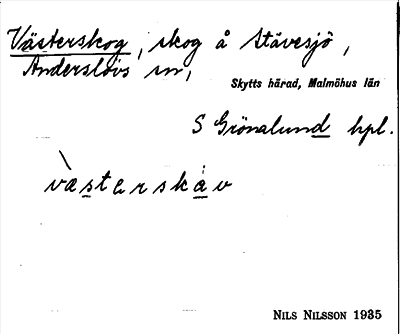 Västerskog, skog å Stävesjö,
Anderslövs sn,
Skytts härad, Malmöhus län
S Grönalund hpl.
vàsterskav
NILS NILSSON 1935